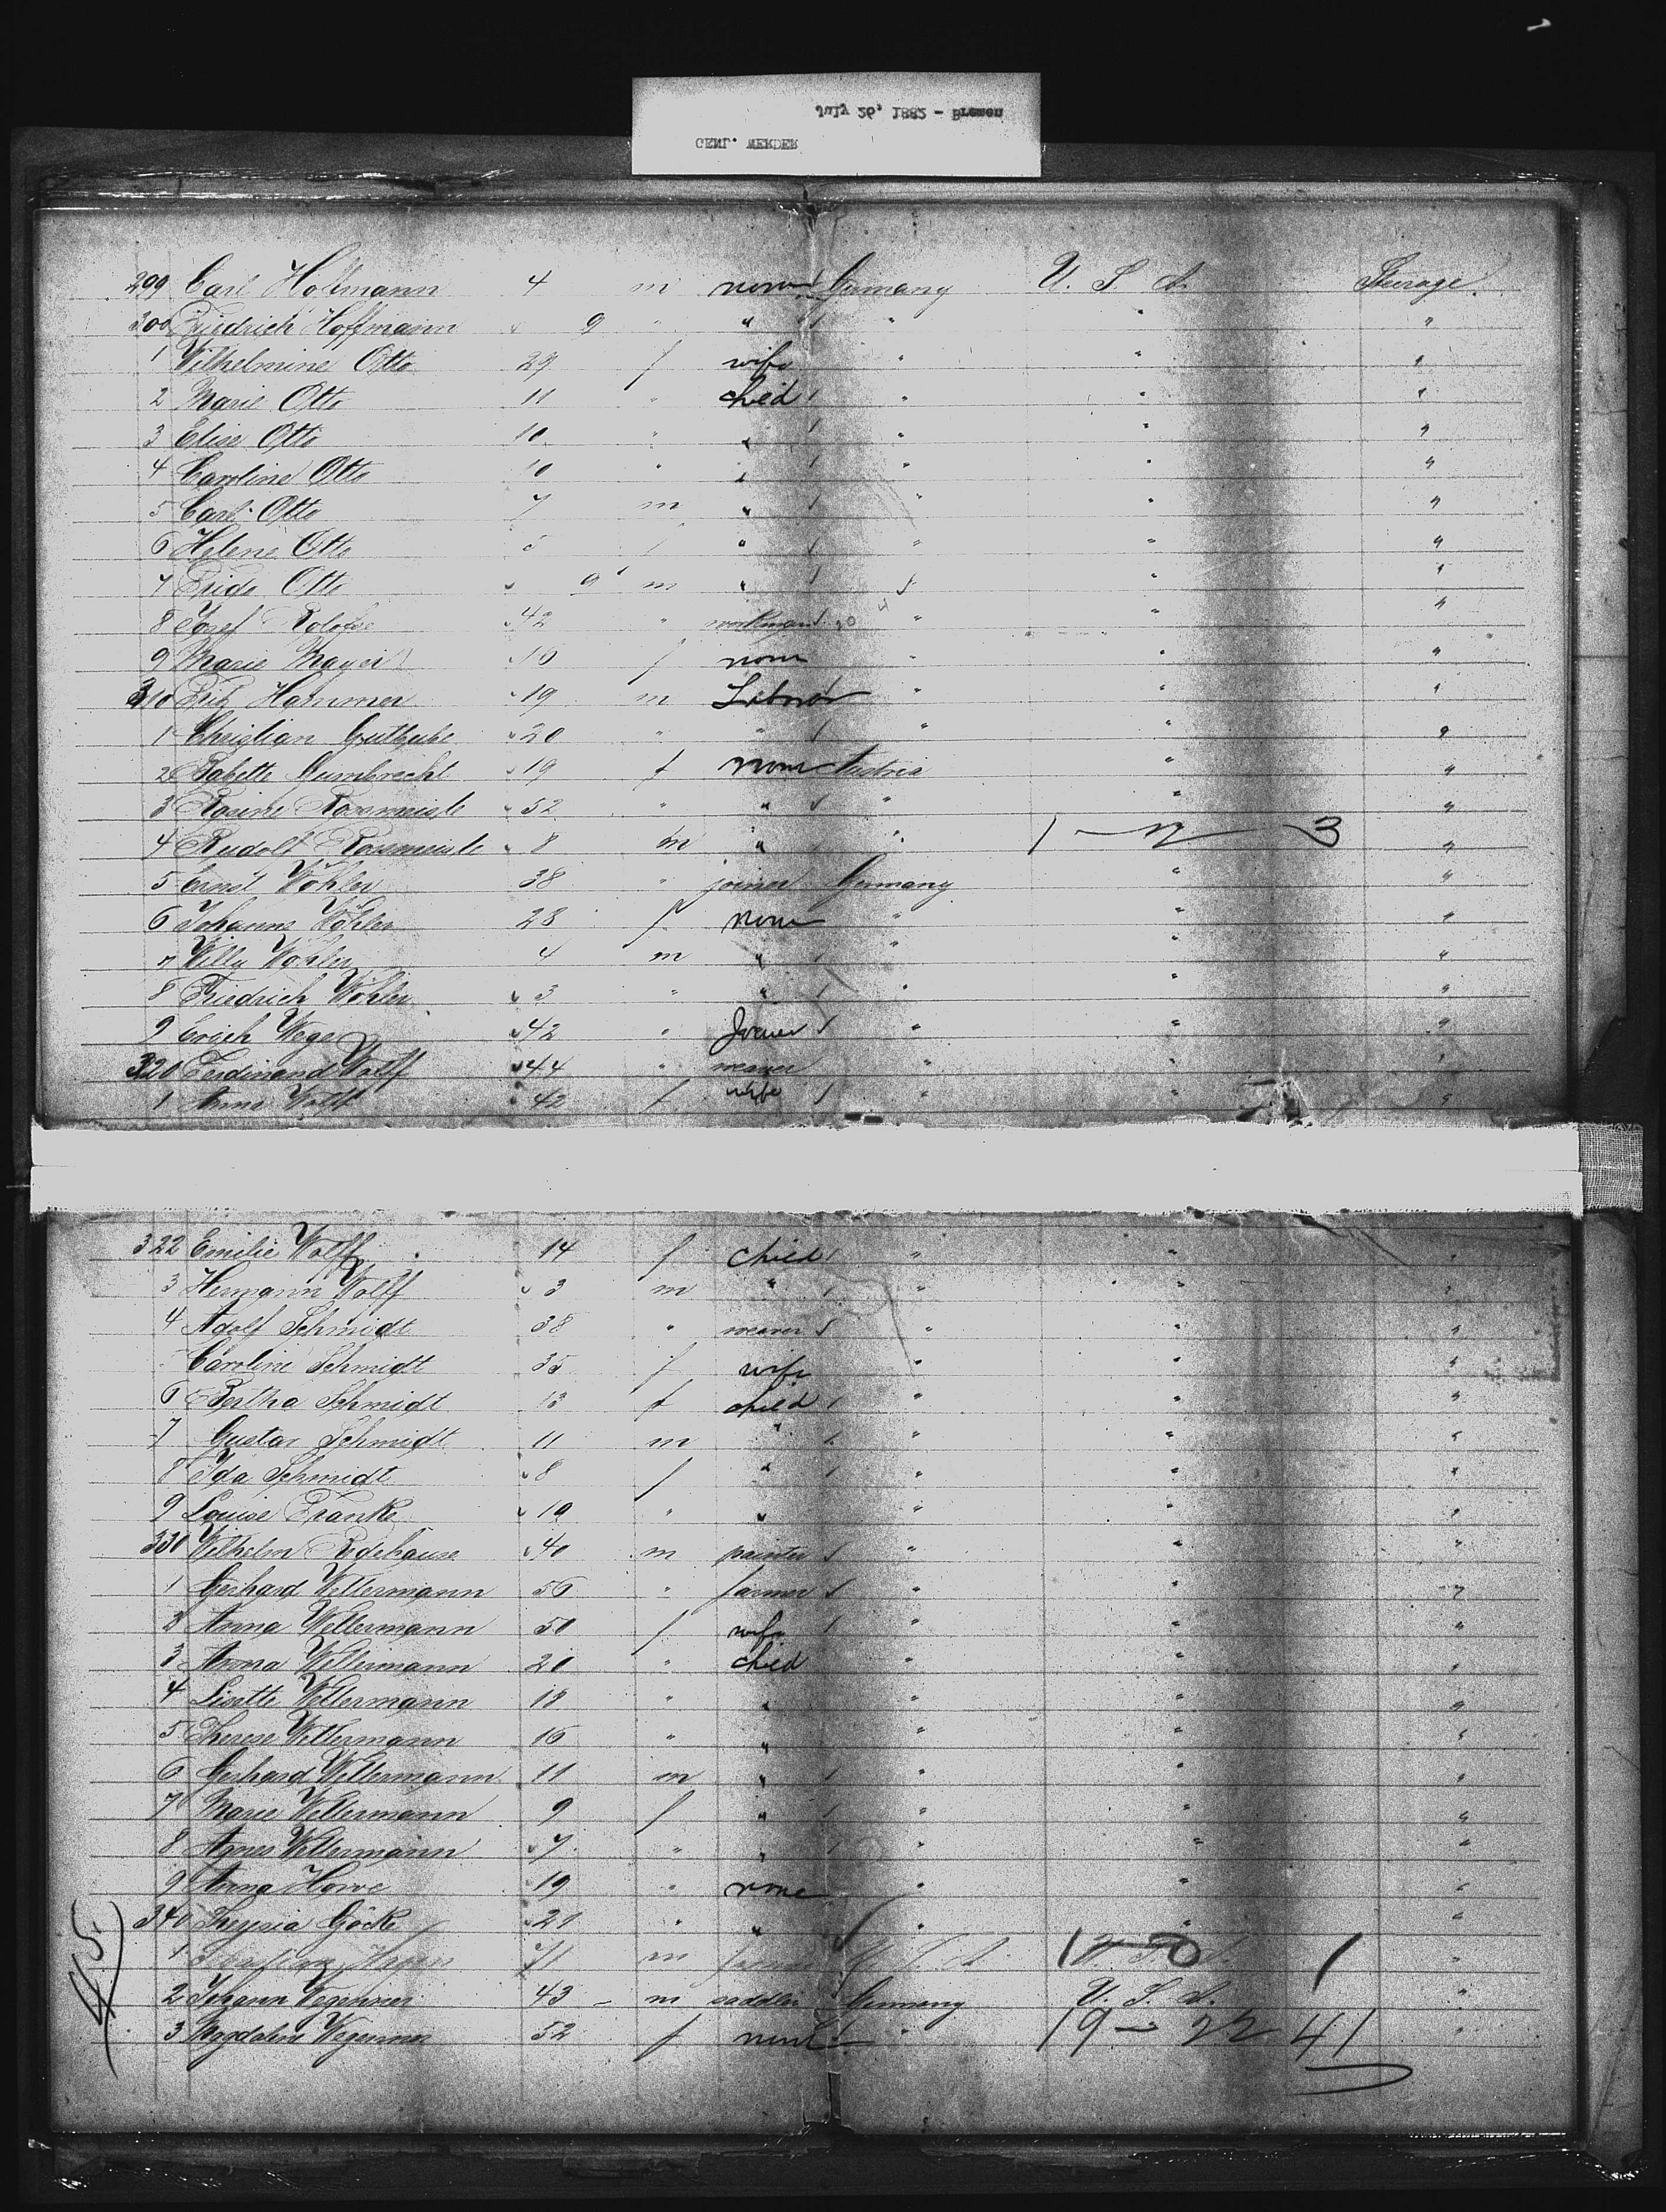 July 26, 1882 - Bremen
GENL. WERDER
299 Carl Hoffmann 4 m none Germany U. S. A. Steerage
300 Friedrich Hoffmann 9 " " " " "
1 Wilhelmine Otto 29 f wife " " "
2 Marie Otto 11 " child " " "
3 Elise Otto 10 " " " " "
4 Caroline Otto 10 " " " " "
5 Carl Otto 7 m " " " "
6 Helene Otto 5 f " " " "
7 Otto 9 m " " "
8 Josef 42 " workman " " "
9 Marie Mayer f none " " "
310 Fritz Hammer 19 m Labour " " "
1 Christian 20 " " " " "
2 Babette Gumbrecht 19 f none Austria " "
3 Rosine 52 " " " " "
4 Rudolf 8 m " " 1 - 2 3 "
5 Ernst Wöhler 38 " joiner Germany " "
6 Johanne Wöhler 28 f none " " "
7 Willy Wöhler 4 m " " " "
8 Friedrich Wöhler 3 " " " " "
9 Erich Wege 42 " Joiner " " "
320 Ferdinand Wolff 44 " weaver " " "
1 Anna Wolff 42 f wife " " "
322 Emilie Wolff 14 f child " " "
3 Hermann Wolff 3 m " " " "
4 Adolf Schmidt 38 " weaver " " "
Caroline Schmidt 35 f wife " " "
6 Bertha Schmidt 13 f child " " "
7 Gustav Schmidt 11 m " " " "
8 Ida Schmidt 8 f " " " "
9 Louise Franke 19 " " " " "
330 Wilhelm Rodehause 40 m painter " " "
1 Gerhard Wellermann 56 " farmer " " "
2 Anna Wellermann 50 f wife " " "
3 Anna Wellermann 20 " child " " "
4 Lisette Wellermann 18 " " " " "
5 Therese Wellermann 16 " " " " "
6 Gerhard Wellermann 11 m " " " "
7 Marie Wellermann 9 f " " " "
8 Agnes Wellermann 7 " " " " "
9 Anna Howe 19 " none " " "
340 Göcke 21 " " " " "
1 m U. S. A. 1 - 0 1 "
2 Johann 43 m saddler Germany U. S. A. "
3 Magdalene 52 f none " 19 - 22 41 "